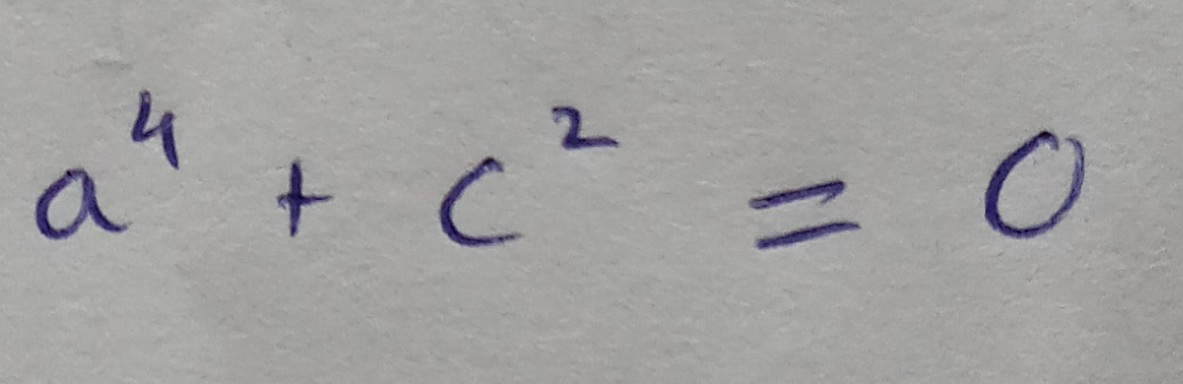 a⁴ + c² = 0